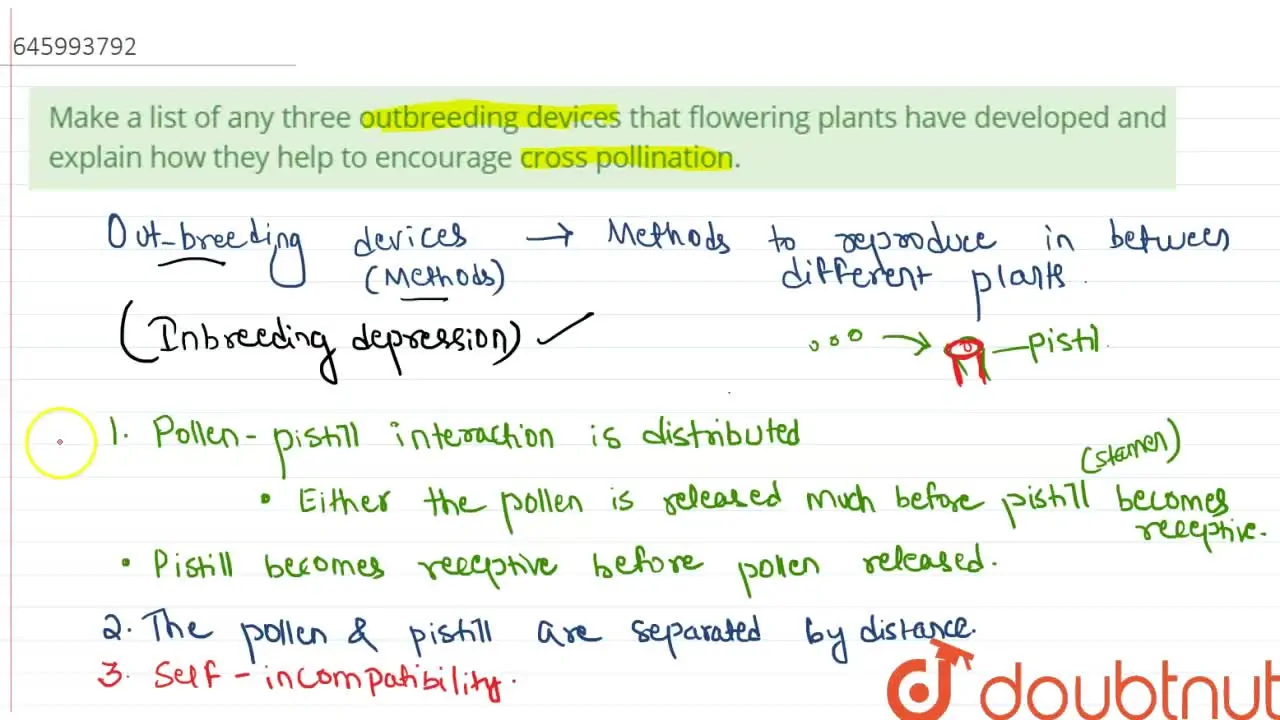 645993792
Make a list of any three outbreeding devices that flowering plants have developed and
explain how they help to encourage cross pollination.
Out-breeding devices → Methods to reproduce in between
(Methods) different plants.
(Inbreeding depression) ✓
→ pistil
1. Pollen-pistill interaction is distributed
(stamen)
• Either the pollen is released much before pistill becomes
receptive.
• Pistill becomes receptive before pollen released.
2. The pollen & pistill are separated by distance.
3. Self-incompatibility.
doubtnut